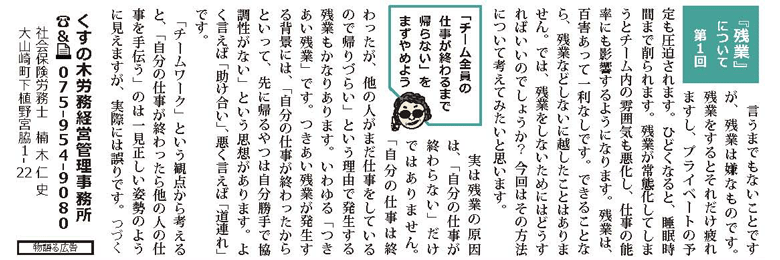 『残業』
について
第1回
言うまでもないことです
が、残業は嫌なものです。
残業をするとそれだけ疲れ
ますし、プライベートの予
定も圧迫されます。ひどくなると、睡眠時
間まで削られます。残業が常態化してしま
うとチーム内の雰囲気も悪化し、仕事の能
率にも影響するようになります。残業は、
百害あって一利なしです。できることな
ら、残業などしないに越したことはありま
せん。では、残業をしないためにはどうす
ればいいのでしょうか？今回はその方法
について考えてみたいと思います。
「チーム全員の
仕事が終わるまで
帰らない」を
まずやめよう
実は残業の原因
は、「自分の仕事が
終わらない」だけ
ではありません。
「自分の仕事は終
わったが、他の人がまだ仕事をしている
ので帰りづらい」という理由で発生する
残業もかなりあります。いわゆる「つき
あい残業」です。つきあい残業が発生す
る背景には、「自分の仕事が終わったから
といって、先に帰るやつは自分勝手で協
調性がない」という思想があります。よ
く言えば「助け合い」、悪く言えば「道連れ」
です。
「チームワーク」という観点から考える
と、「自分の仕事が終わったら他の人の仕
事を手伝う」のは一見正しい姿勢のよう
に見えますが、実際には誤りです。つづく
くすの木労務経営管理事務所
☎&📠 075-954-9080
社会保険労務士 楠木仁史
大山崎町下植野宮脇1-22
物語る広告